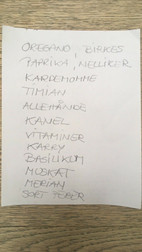 OREGANO, BISKES
PAPRIKA, NELLIKER
KARDEMOMME
TIMIAN
ALLEHÅNDE
KANEL
VITAMINER
KARRY
BASILIKUM
MUSKAT
MERIAN
SORT PEBER